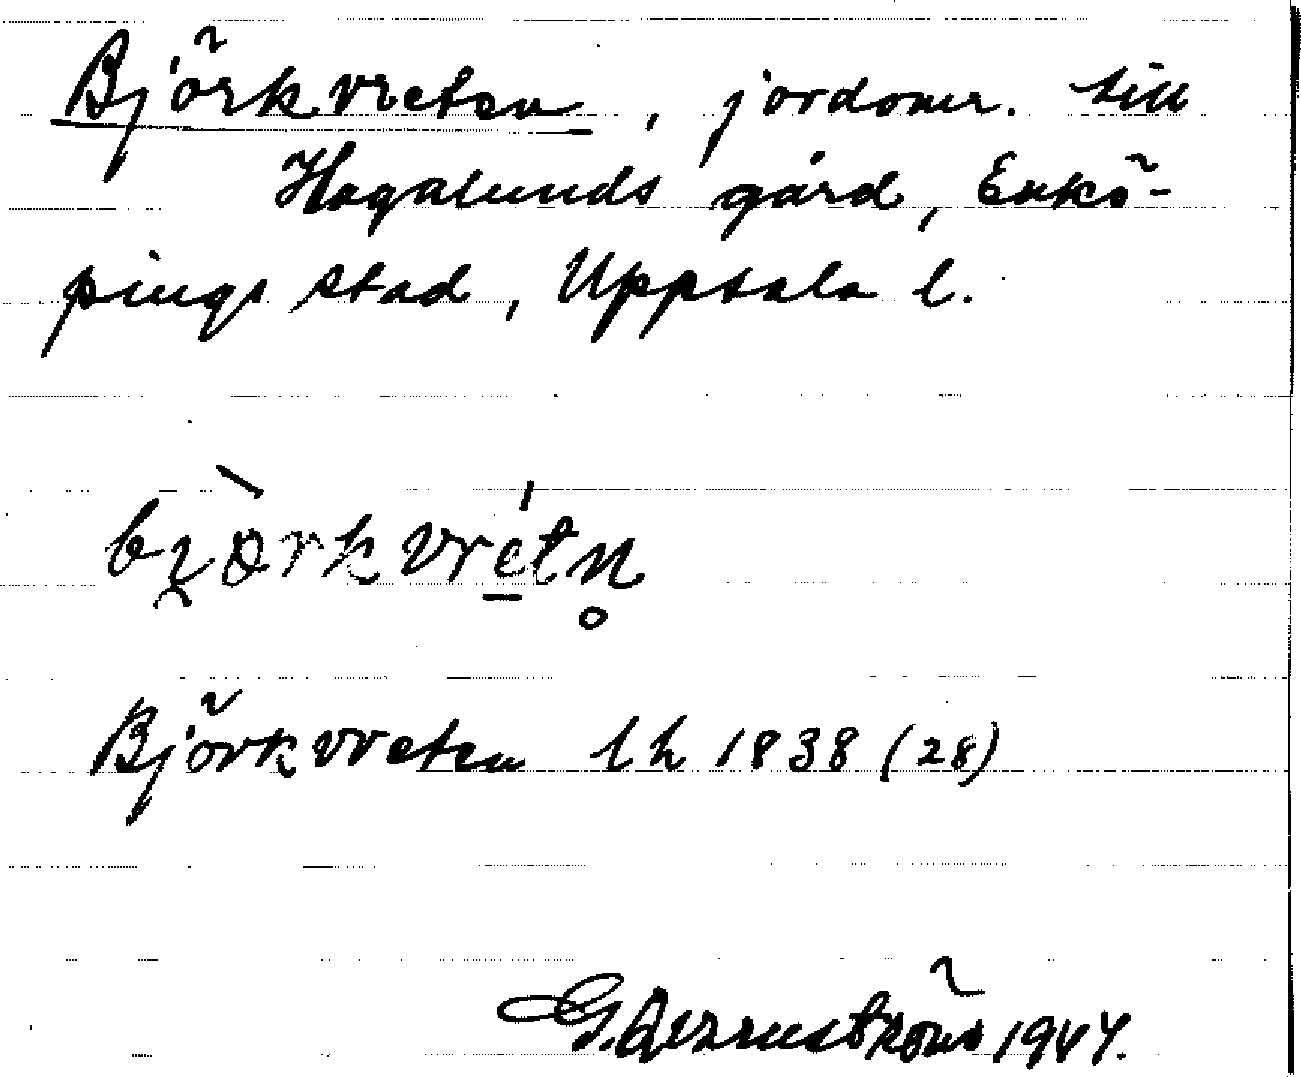 Björkvreten, jordomr. till
Hagalunds gård, Enkö-
pings stad, Uppsala l.
bi̯ö̀rkvré̱tn̥
Björkvreten lh 1838 (28)
G. 1944.